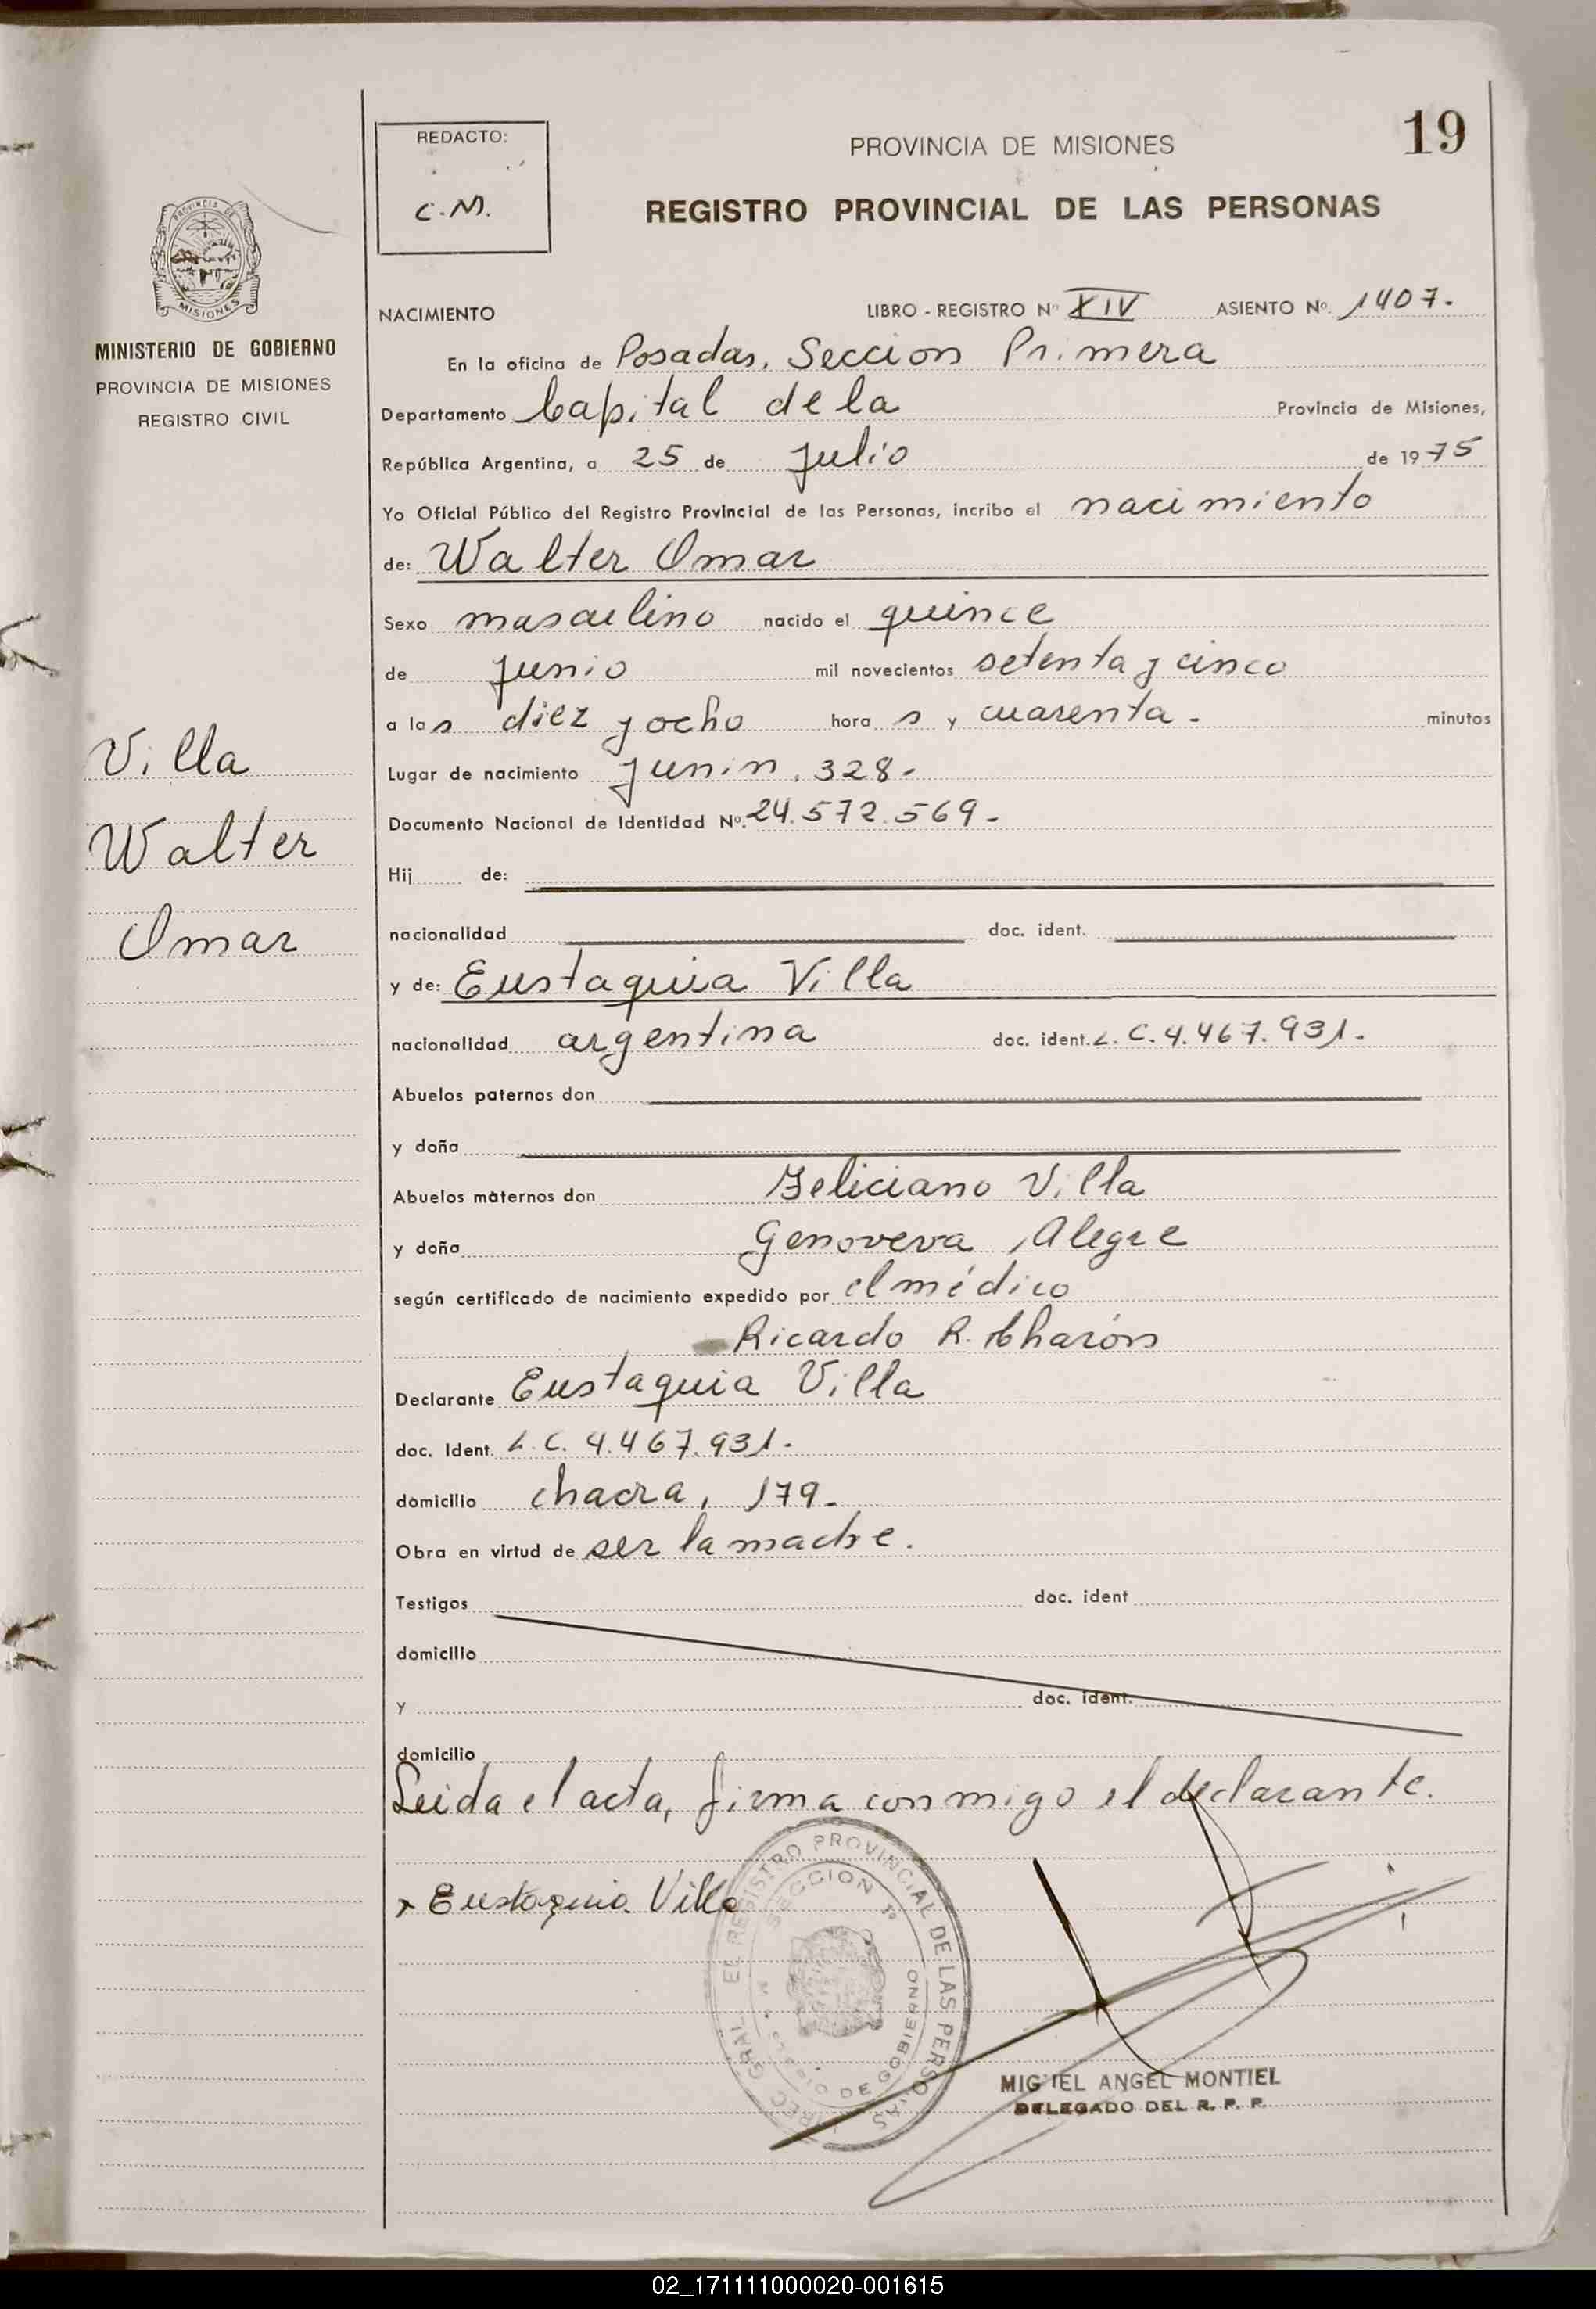 19
REDACTO:
C.M.
PROVINCIA DE MISIONES
REGISTRO PROVINCIAL DE LAS PERSONAS
PROVINCIA DE
MISIONES
MINISTERIO DE GOBIERNO
PROVINCIA DE MISIONES
REGISTRO CIVIL
Villa
Walter
Omar
NACIMIENTO LIBRO - REGISTRO Nº XIV ASIENTO Nº. 1407.
En la oficina de Posadas, Seccion Primera
Departamento Capital de la Provincia de Misiones,
República Argentina, a 25 de Julio de 1975
Yo Oficial Público del Registro Provincial de las Personas, incribo el nacimiento
de: Walter Omar
Sexo masculino nacido el quince
de Junio mil novecientos setenta y cinco
a las diez y ocho horas y cuarenta. minutos
Lugar de nacimiento Junin, 328.
Documento Nacional de Identidad Nº. 24.572.569.
Hij de:
nacionalidad doc. ident.
y de: Eustaquia Villa
nacionalidad argentina doc. ident. L.C. 4.467.931.
Abuelos paternos don
y doña
Abuelos maternos don Feliciano Villa
y doña Genoveva Alegre
según certificado de nacimiento expedido por el médico
Ricardo R. Charón
Declarante Eustaquia Villa
doc. Ident. L.C. 4.467.931.
domicilio chacra, 179.
Obra en virtud de ser la madre.
Testigos doc. ident
domicilio
y doc. ident.
domicilio
Leida el acta, firma conmigo el declarante.
x Eustaquia Villa
EL REGISTRO PROVINCIAL DE LAS PERSONAS
SECCION 1ª
DE GOBIERNO
MIGUEL ANGEL MONTIEL
DELEGADO DEL R. P. P.
02_171111000020-001615